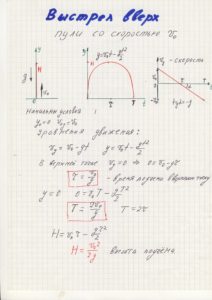 Выстрел вверх
пули со скоростью v₀
y
H
g
v₀
y
y=v₀t-gt²/2
H
τ
T
t
v_y - скорость
v₀
τ
T
t
tgγ=-g
Начальные условия
y₀=0 v₀y=v₀
Уравнения движения:
v_y=v₀-gt y=v₀t-gt²/2
В верхней точке v_y=0 ⇒ 0=v₀-gτ
τ=v₀/g - время полета в верхнюю точку
y=0 0=v₀T-gT²/2
T=2v₀/g T=2τ
H=v₀τ-gτ²/2
H=v₀²/2g Высота подъема.